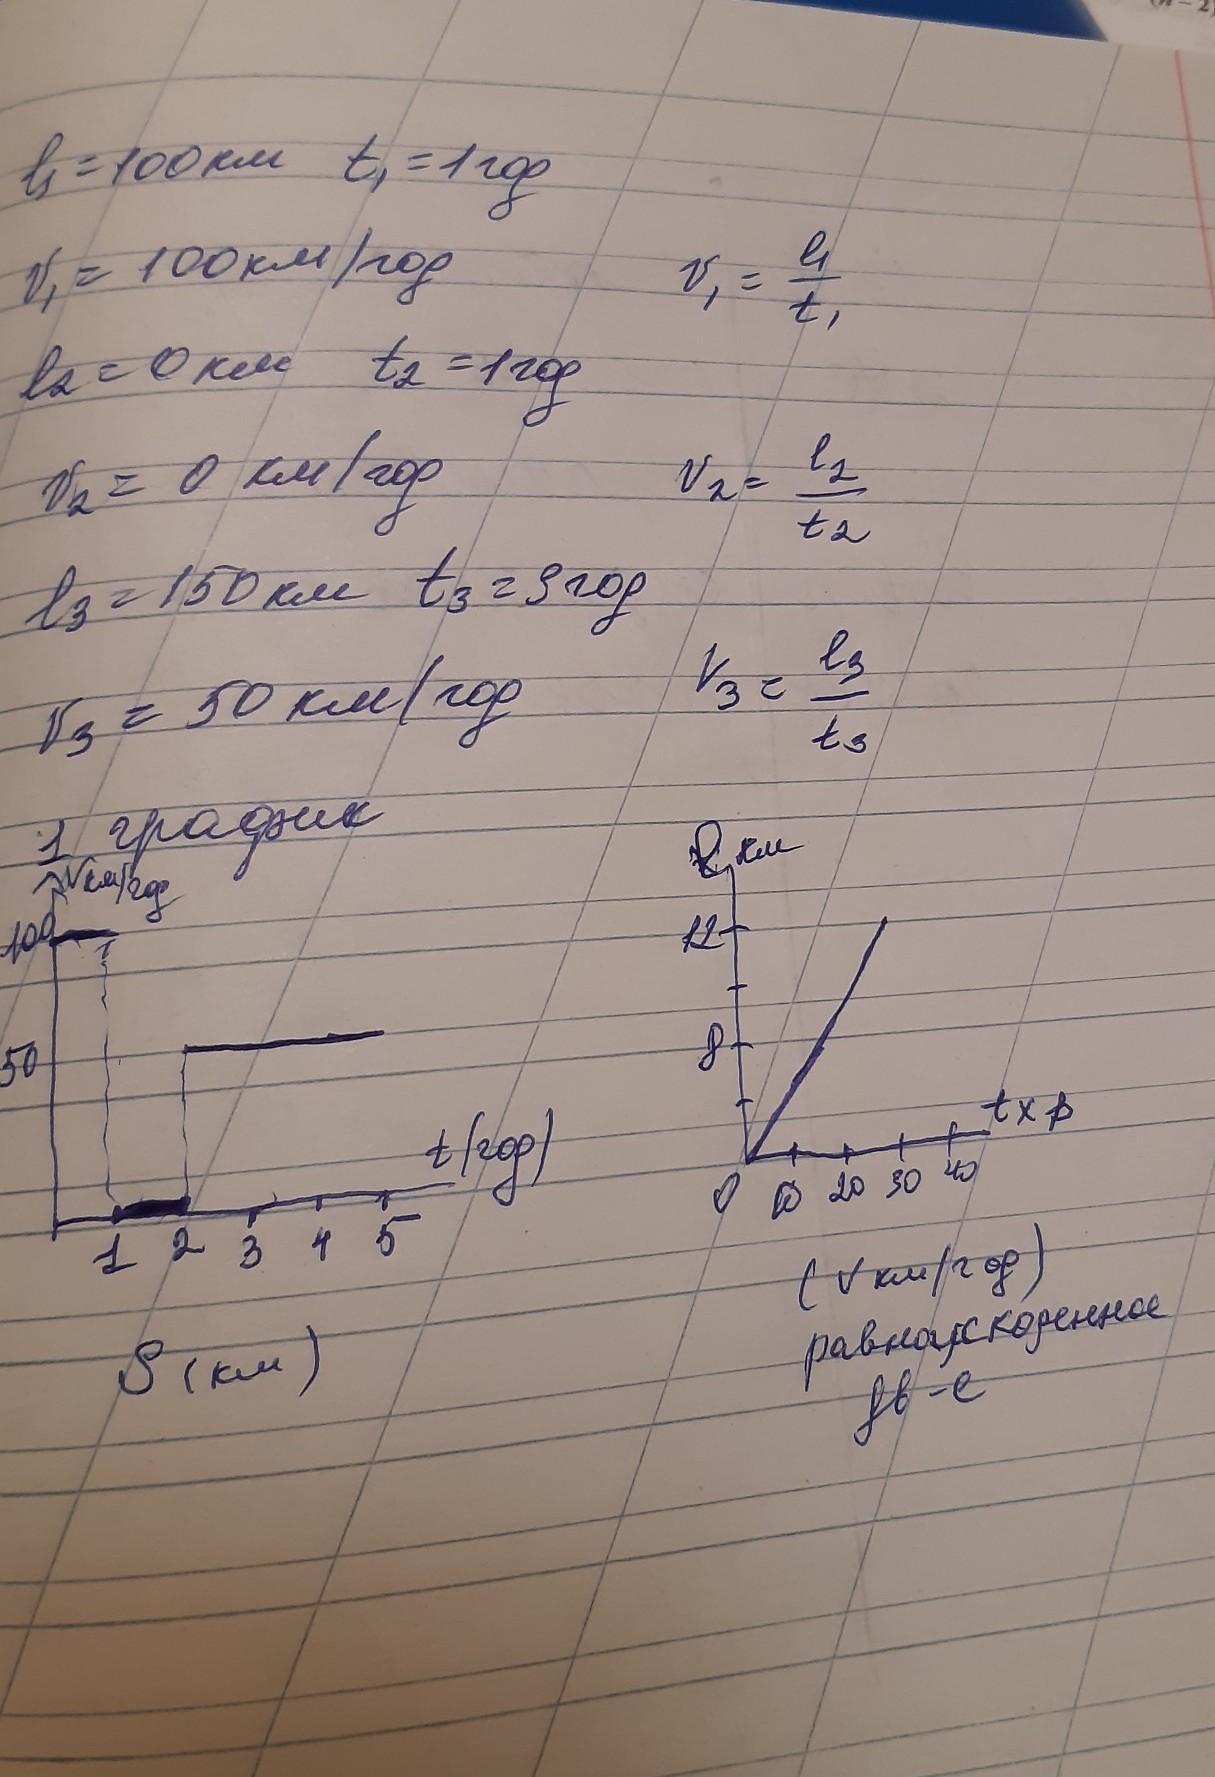 (n-2)
l₁ = 100 км t₁ = 1 год
v₁ = 100 км/год v₁ = l₁/t₁
l₂ = 0 км t₂ = 1 год
v₂ = 0 км/год v₂ = l₂/t₂
l₃ = 150 км t₃ = 3 год
v₃ = 50 км/год v₃ = l₃/t₃
1 график
v км/год
100
50
t(год)
1 2 3 4 5
S (км)
l км
12
8
t хв
0 10 20 30 40
(v км/год)
равноускоренное
дв-е